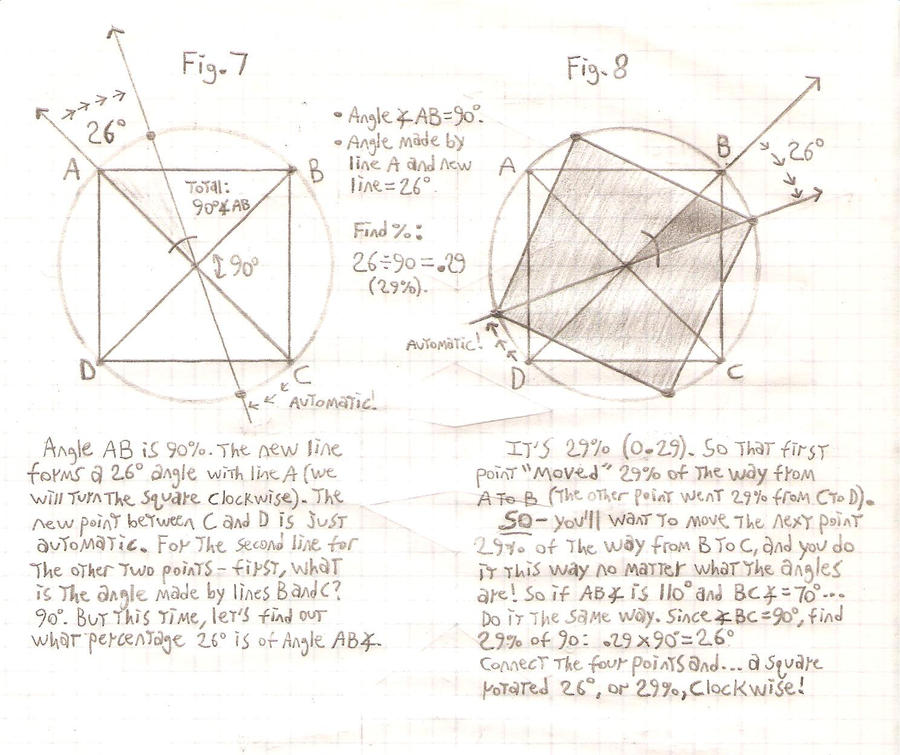 Fig. 7
Fig. 8
26°
A
B
Total:
90°∡AB
90°
D
C
Automatic!
• Angle ∡AB=90°.
• Angle made by
line A and new
line=26°.
Find %:
26÷90=.29
(29%).
A
B
26°
Automatic!
D
C
Angle AB is 90%. The new line
forms a 26° angle with line A (we
will turn the square clockwise). The
new point between C and D is just
automatic. For the second line for
the other two points - first, what
is the angle made by lines B and C?
90°. But this time, let's find out
what percentage 26° is of Angle AB∡.
It's 29% (0.29). So that first
point "moved" 29% of the way from
A to B (the other point went 29% from C to D).
So - you'll want to move the next point
29% of the way from B to C, and you do
it this way no matter what the angles
are! So if AB∡ is 110° and BC∡=70°...
Do it the same way. Since ∡BC=90°, find
29% of 90: .29×90°=26°
Connect the four points and... a square
rotated 26°, or 29%, clockwise!